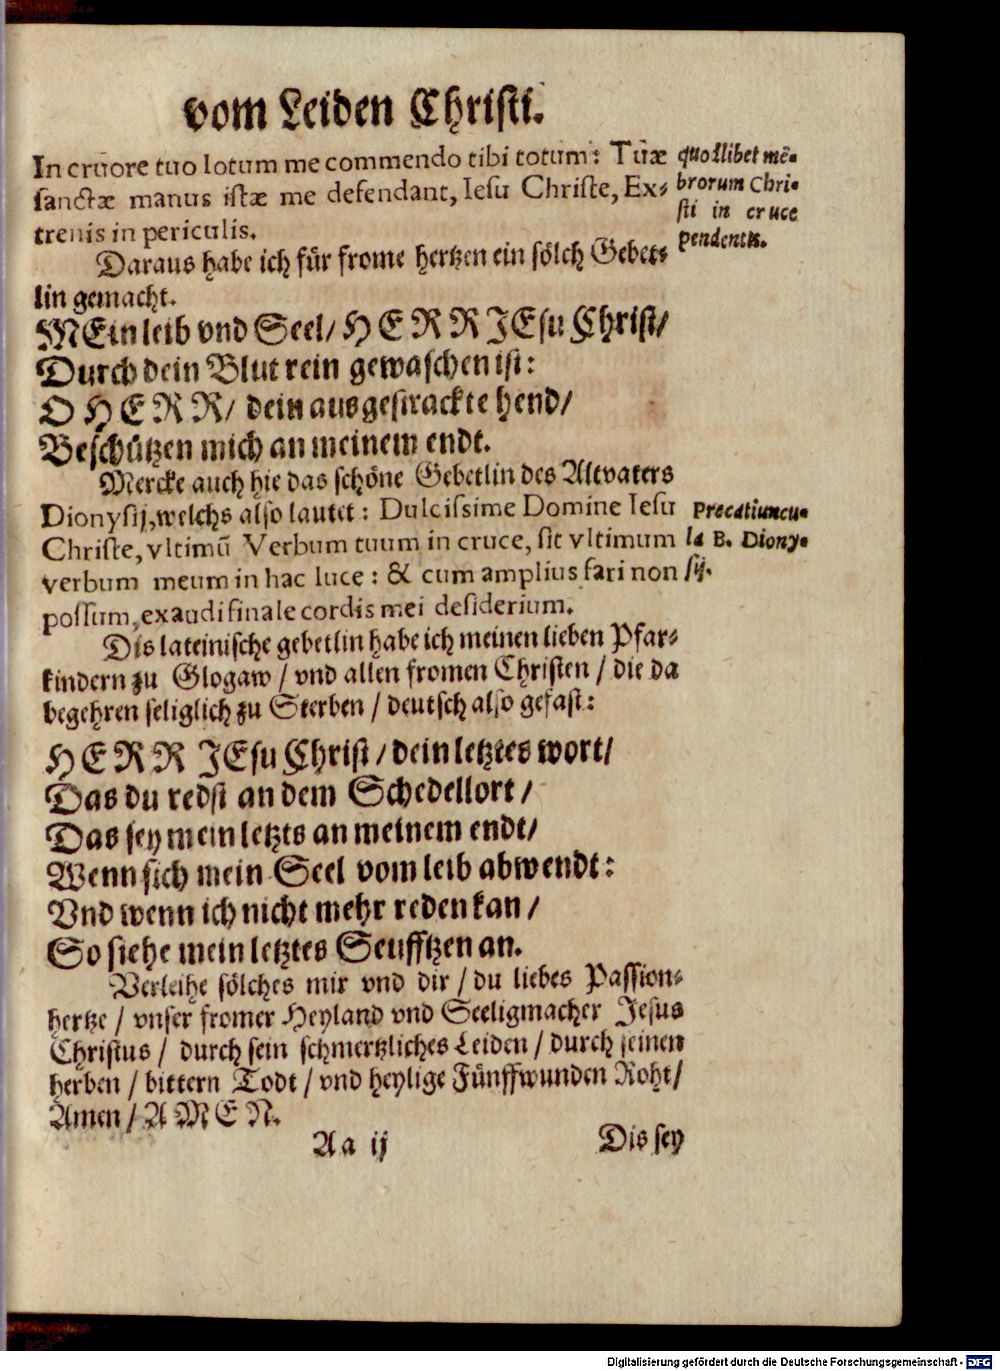 vom Leiden Christi.
In cruore tuo lotum me commendo tibi totum: Tuæ
sanctæ manus istæ me defendant, Iesu Christe, Ex-
trenis in periculis.
quotlibet mē-
brorum Chri-
sti in cruce
pendentis.
Daraus habe ich für frome hertzen ein sölch Gebet-
lin gemacht.
MEin leib vnd Seel/ HERR JEsu Christ/
Durch dein Blut rein gewaschen ist:
O HERR/ dein ausgestrackte hend/
Beschützen mich an meinem endt.
Mercke auch hie das schöne Gebetlin des Altvaters
Dionysij, welchs also lautet: Dulcissime Domine Iesu
Christe, vltimū Verbum tuum in cruce, sit vltimum
verbum meum in hac luce: & cum amplius fari non
possum, exaudi finale cordis mei desiderium.
Precatiuncu-
la B. Diony-
sij.
Dis lateinische gebetlin habe ich meinen lieben Pfar-
kindern zu Glogaw / vnd allen fromen Christen / die da
begehren seliglich zu Sterben / deutsch also gefast:
HERR JEsu Christ / dein letztes wort/
Das du redst an dem Schedellort /
Das sey mein letzts an meinem endt/
Wenn sich mein Seel vom leib abwendt:
Vnd wenn ich nicht mehr reden kan /
So siehe mein letztes Seufftzen an.
Verleihe sölches mir vnd dir / du liebes Passion-
hertze / vnser fromer Heyland vnd Seeligmacher Jesus
Christus / durch sein schmertzliches Leiden / durch seinen
herben / bittern Todt / vnd heylige Fünffwunden Roht/
Amen / AMEN.
Aa ij
Dis sey
Digitalisierung gefördert durch die Deutsche Forschungsgemeinschaft - DFG